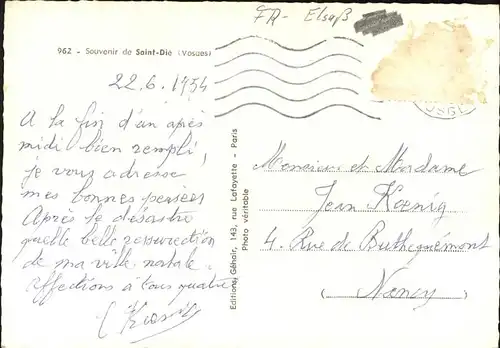 FR- Elsaß
962 - Souvenir de Saint-Dié (Vosges)
22.6.1954
A la fin d'un après
midi bien rempli,
je vous adresse
mes bonnes pensées
Après le désastre
quelle belle resurrection
de ma ville natale.
affections à tous quatre
Editions Géhoir, 143, rue Lafayette - Paris
Photo véritable
Monsieur et Madame
Jean Kœnig
4. Rue de Buthegnémont
Nancy